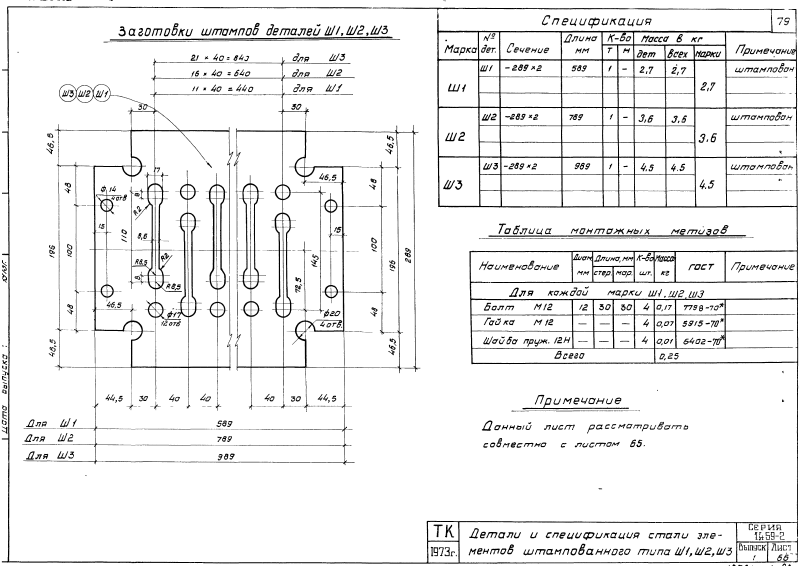 79
Заготовки штампов деталей Ш1, Ш2, Ш3
21 × 40 = 840 для Ш3
16 × 40 = 640 для Ш2
11 × 40 = 440 для Ш1
Ш3 Ш2 Ш1
30 30
46,5
48
100
48
46,5
196
ф.14
4 отв.
15
17
8
R2
110
8,6
R2
R8,5
8
R8,5
46,5
ф17
12 отв.
46,5
145
72,5
15
ф20
4 отв.
46,5
48
100
48
46,5
196
289
44,5 30 40 40 40 30 44,5
Для Ш1 589
Для Ш2 789
Для Ш3 989
Спецификация
Марка № дет. Сечение Длина мм К-во Масса в кг Примечание
т н дет всех марки
Ш1 Ш1 -289×2 589 1 - 2,7 2,7 2,7 штампован
Ш2 Ш2 -289×2 789 1 - 3,6 3,6 3,6 штампован
Ш3 Ш3 -289×2 989 1 - 4.5 4.5 4.5 штампован
Таблица монтажных метизов
Наименование Диам. мм Длина, мм К-во шт. Масса кг ГОСТ Примечание
стер. нар.
Для каждой марки Ш1, Ш2, Ш3
Болт М12 12 30 30 4 0,17 7798-70*
Гайка М12 — — — 4 0,07 5915-70*
Шайба пруж. 12Н — — — 4 0,01 6402-70*
Всего 0,25
Примечание
Данный лист рассматривать
совместно с листом 65.
Дата выпуска:
ТК
1973г.
Детали и спецификация стали эле-
ментов штампованного типа Ш1, Ш2, Ш3
СЕРИЯ
1.459-2
Выпуск 1
Лист 66